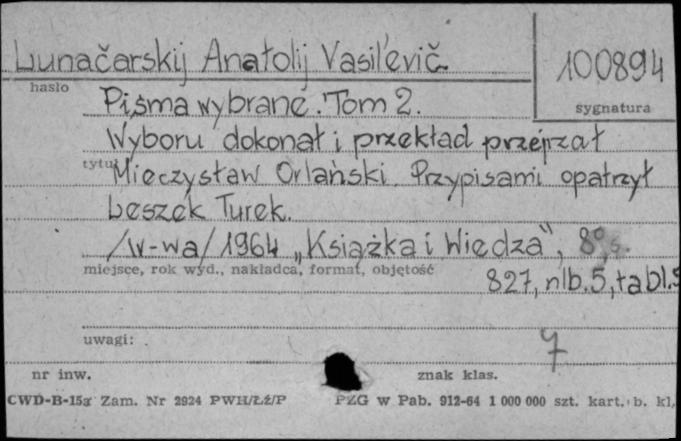 Lunačarskij Anatolij Vasil'evič
100894
hasło
sygnatura
Pisma wybrane. Tom 2.
Wyboru dokonał i przekład przejrzał
tytuł
Mieczysław Orlański. Przypisami opatrzył
Leszek Turek.
/W-wa/ 1964 „Książka i Wiedza", 8°, s.
miejsce, rok wyd., nakładca, format, objętość
827, nlb. 5, tabl.
uwagi:
7
nr inw.
znak klas.
CWD-B-15g Zam. Nr 2924 PWH/Łż/P
PZG w Pab. 912-64 1 000 000 szt. kart. b. kl,